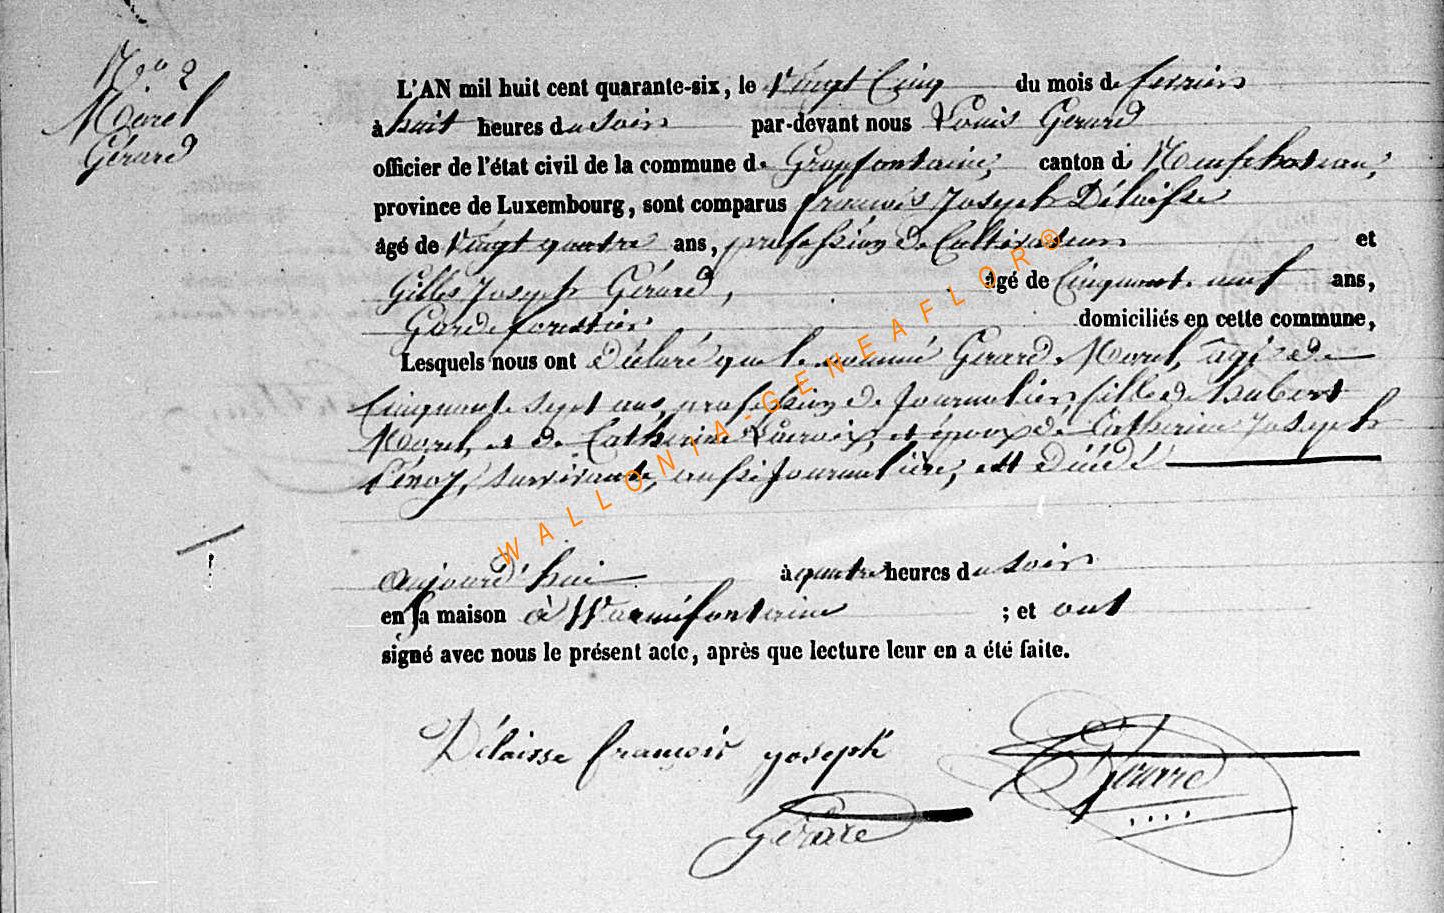 No 2
Morel
Gérard
L'AN mil huit cent quarante-six, le Vingt Cinq du mois de fevrier
à huit heures du soir par-devant nous Louis Gerard
officier de l'état civil de la commune de Grapfontaine, canton de Neufchateau,
province de Luxembourg, sont comparus françois Joseph Délaisse
âgé de Vingt quatre ans, profession de Cultivateur et
Gilles Joseph Gérard, âgé de Cinquante neuf ans,
Garde forestier domiciliés en cette commune,
Lesquels nous ont Déclaré que le nommé Gerard Morel, âgé de
Cinquante sept ans, profession de Journalier, fils de hubert
Morel, et de Catherine Lacroix, et époux de Catherine Joseph
survivante, aussi Journalière, est décédé
aujourd'hui à quatre heures du soir
en sa maison à Warmifontaine ; et ont
signé avec nous le présent acte, après que lecture leur en a été faite.
Délaisse françois joseph
Gérard
Gérard
WALLONIA-GENEAFLOR®